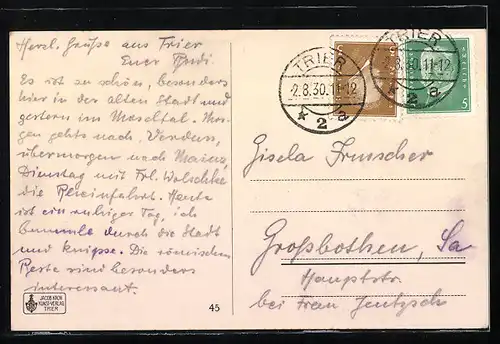 Herzl. Grüße aus Trier
Euer Rudi.
Es ist so schön, besonders
hier in der alten Stadt und
gestern im Moseltal. Mor-
gen gehts nach Verdun,
übermorgen nach Mainz,
Dienstag mit Frl. Wolschke
die Rheinfahrt. Heute
ist ein ruhiger Tag, ich
bummle durch die Stadt
und knipse. Die römischen
Reste sind besonders
interessant.
JACOB KRON
KUNST-VERLAG
TRIER
45
TRIER
-2.8.30.11-12
* 2 a
TRIER
-2.8.30.11-12
a
5
Gisela
Großbothen, Sa
Hauptstr.
bei Frau Jentzsch